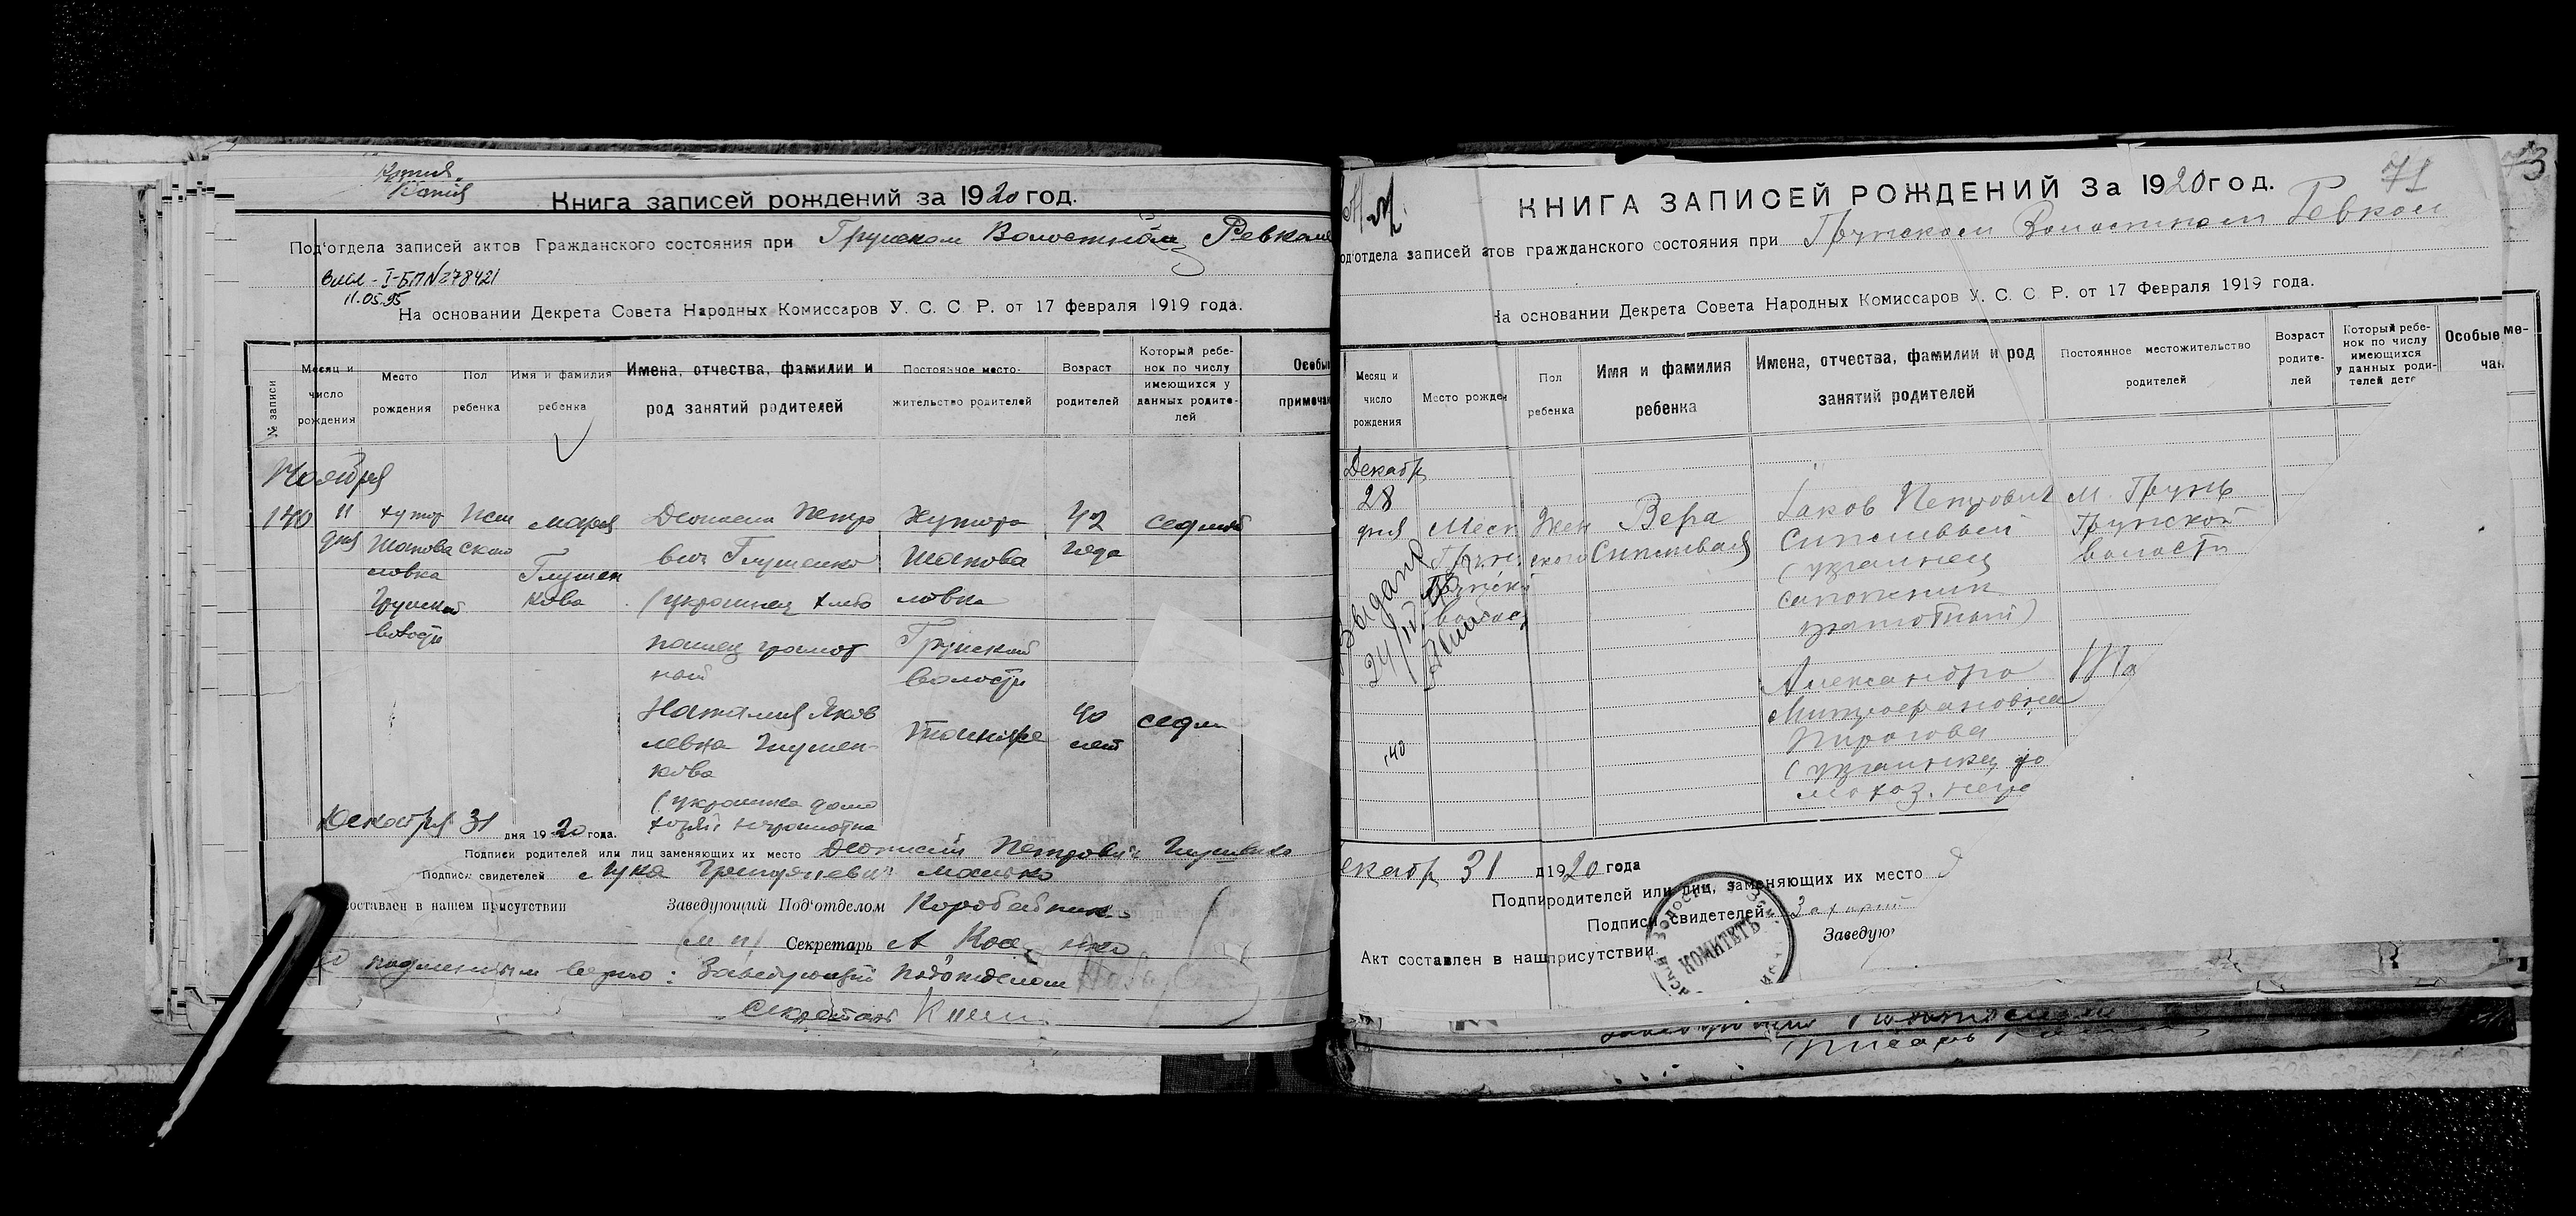 Копия
Книга записей рождений за 1920 год.
Под'отдела записей актов Гражданского состояния при Грунском Волостном Ревкоме
I-БП № 278421
11.05.95
На основании Декрета Совета Народных Комиссаров У. С. С. Р. от 17 февраля 1919 года.
№ записи
Месяц и число рождения
Место рождения
Пол ребенка
Имя и фамилия ребенка
Имена, отчества, фамилии и род занятий родителей
Постоянное место-жительство родителей
Возраст родителей
Который ребе-нок по числу имеющихся у данных родите-лей
Особые примечан
Ноября
140
11
дня
хутор
Шапова
ловка
Грунской
волости
жен
ского
Мария
Глушен
кова
Дионисий Петро
вич Глушенко
(украинец хлебо
пашец грамот
ный
Хутора
Шапова
ловка
Грунской
волости
42
года
седмой
Наталия Яков
левна Глушен-
кова
(украинка домо
хозяй неграмотна
Тоже
40
лет
седм
Декабря 31 дня 1920 года.
Подписи родителей или лиц заменяющих их место Дионисий Петрович Глушенко
Подписи свидетелей Лука Григориевич
составлен в нашем присутствии Заведующий Под'отделом
(м п) Секретарь А
подлинным верно: Заведующий подотделом
Секретарь
71
73
КНИГА ЗАПИСЕЙ РОЖДЕНИЙ За 1920 год.
од'отдела записей атов гражданского состояния при Грунском Волостном Ревком
На основании Декрета Совета Народных Комиссаров У. С. С Р. от 17 Февраля 1919 года.
Месяц и число рождения
Место рожде
Пол ребенка
Имя и фамилия ребенка
Имена, отчества, фамилии и род занятий родителей
Постоянное местожительство родителей
Возраст родите-лей
Который ребе-нок по числу имеющихся у данных роди-телей дете
Особые ме-чан
Декабр
28
дня
Мест
Грунь
Грунской
волост
Жен
ского
Вера
Сипливая
Яков Петрович
Сипливый
(украинец
сапожник
грамотный)
м. Грунь
Грунской
волости
Выдана
Александра
Митрофановна
Пирогова
(украинка до
мохоз. негр
екабр 31 д1920 года
Подпиродителей или лиц, заменяющих их место
Подписи свидетелей Захарий
Заведую
Акт составлен в нашприсутствии.
КОМИТЕТЪ